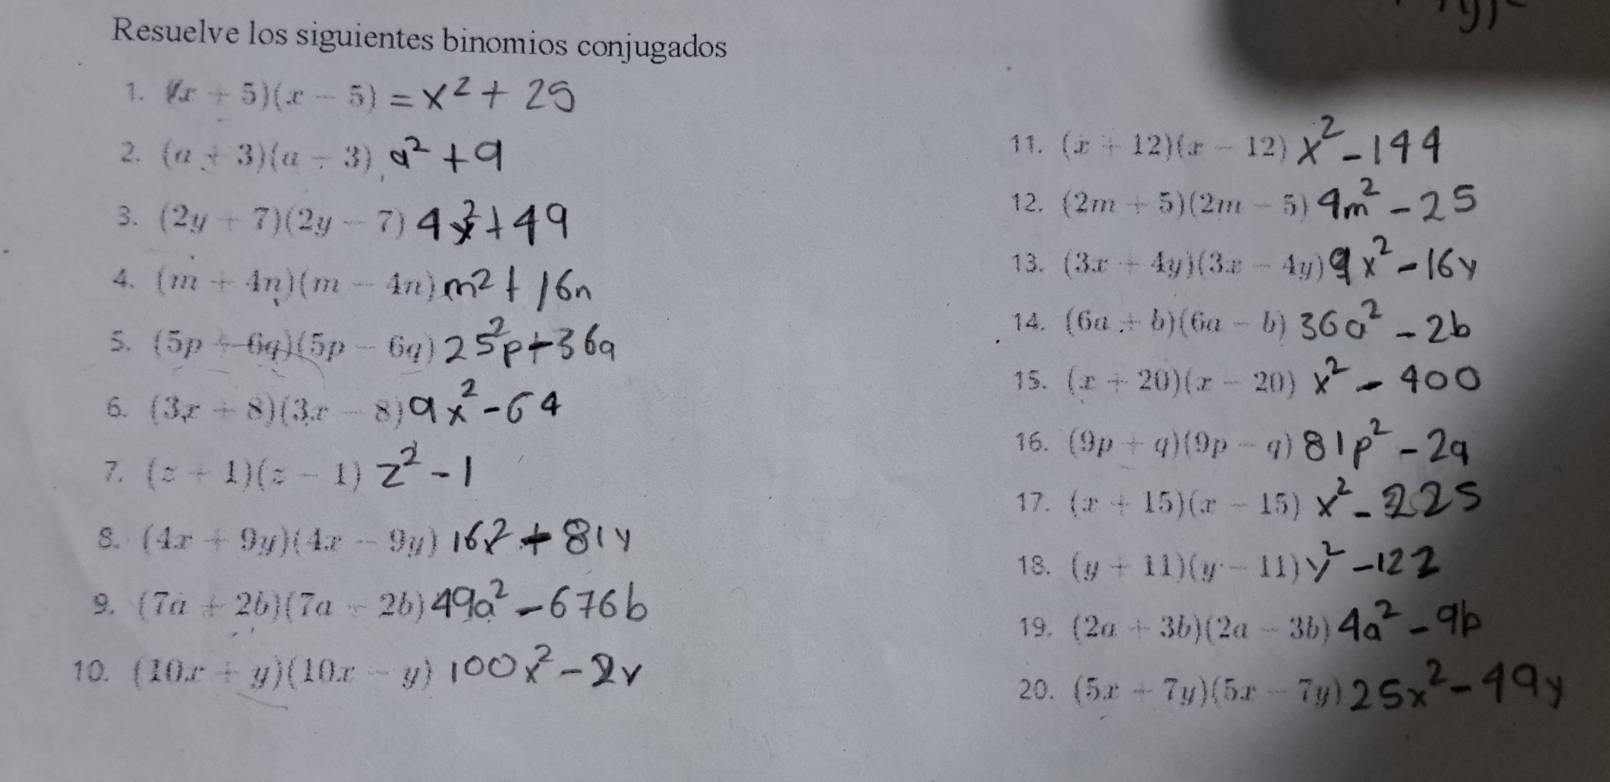 Resuelve los siguientes binomios conjugados
1. (x + 5)(x - 5) = x² + 25
2. (a + 3)(a - 3) a² + 9
3. (2y + 7)(2y - 7) 4y² + 49
4. (m + 4n)(m - 4n) m² + 16n
5. (5p + 6q)(5p - 6q) 25²p + 36q
6. (3x + 8)(3x - 8) 9x² - 64
7. (z + 1)(z - 1) z² - 1
8. (4x + 9y)(4x - 9y) 16x² + 81y
9. (7a + 2b)(7a - 2b) 49a² - 676b
10. (10x + y)(10x - y) 100x² - 2y
11. (x + 12)(x - 12) x² - 144
12. (2m + 5)(2m - 5) 4m² - 25
13. (3x + 4y)(3x - 4y) 9x² - 16y
14. (6a + b)(6a - b) 36a² - 2b
15. (x + 20)(x - 20) x² - 400
16. (9p + q)(9p - q) 81p² - 2q
17. (x + 15)(x - 15) x² - 225
18. (y + 11)(y - 11) y² - 122
19. (2a + 3b)(2a - 3b) 4a² - 9b
20. (5x + 7y)(5x - 7y) 25x² - 49y